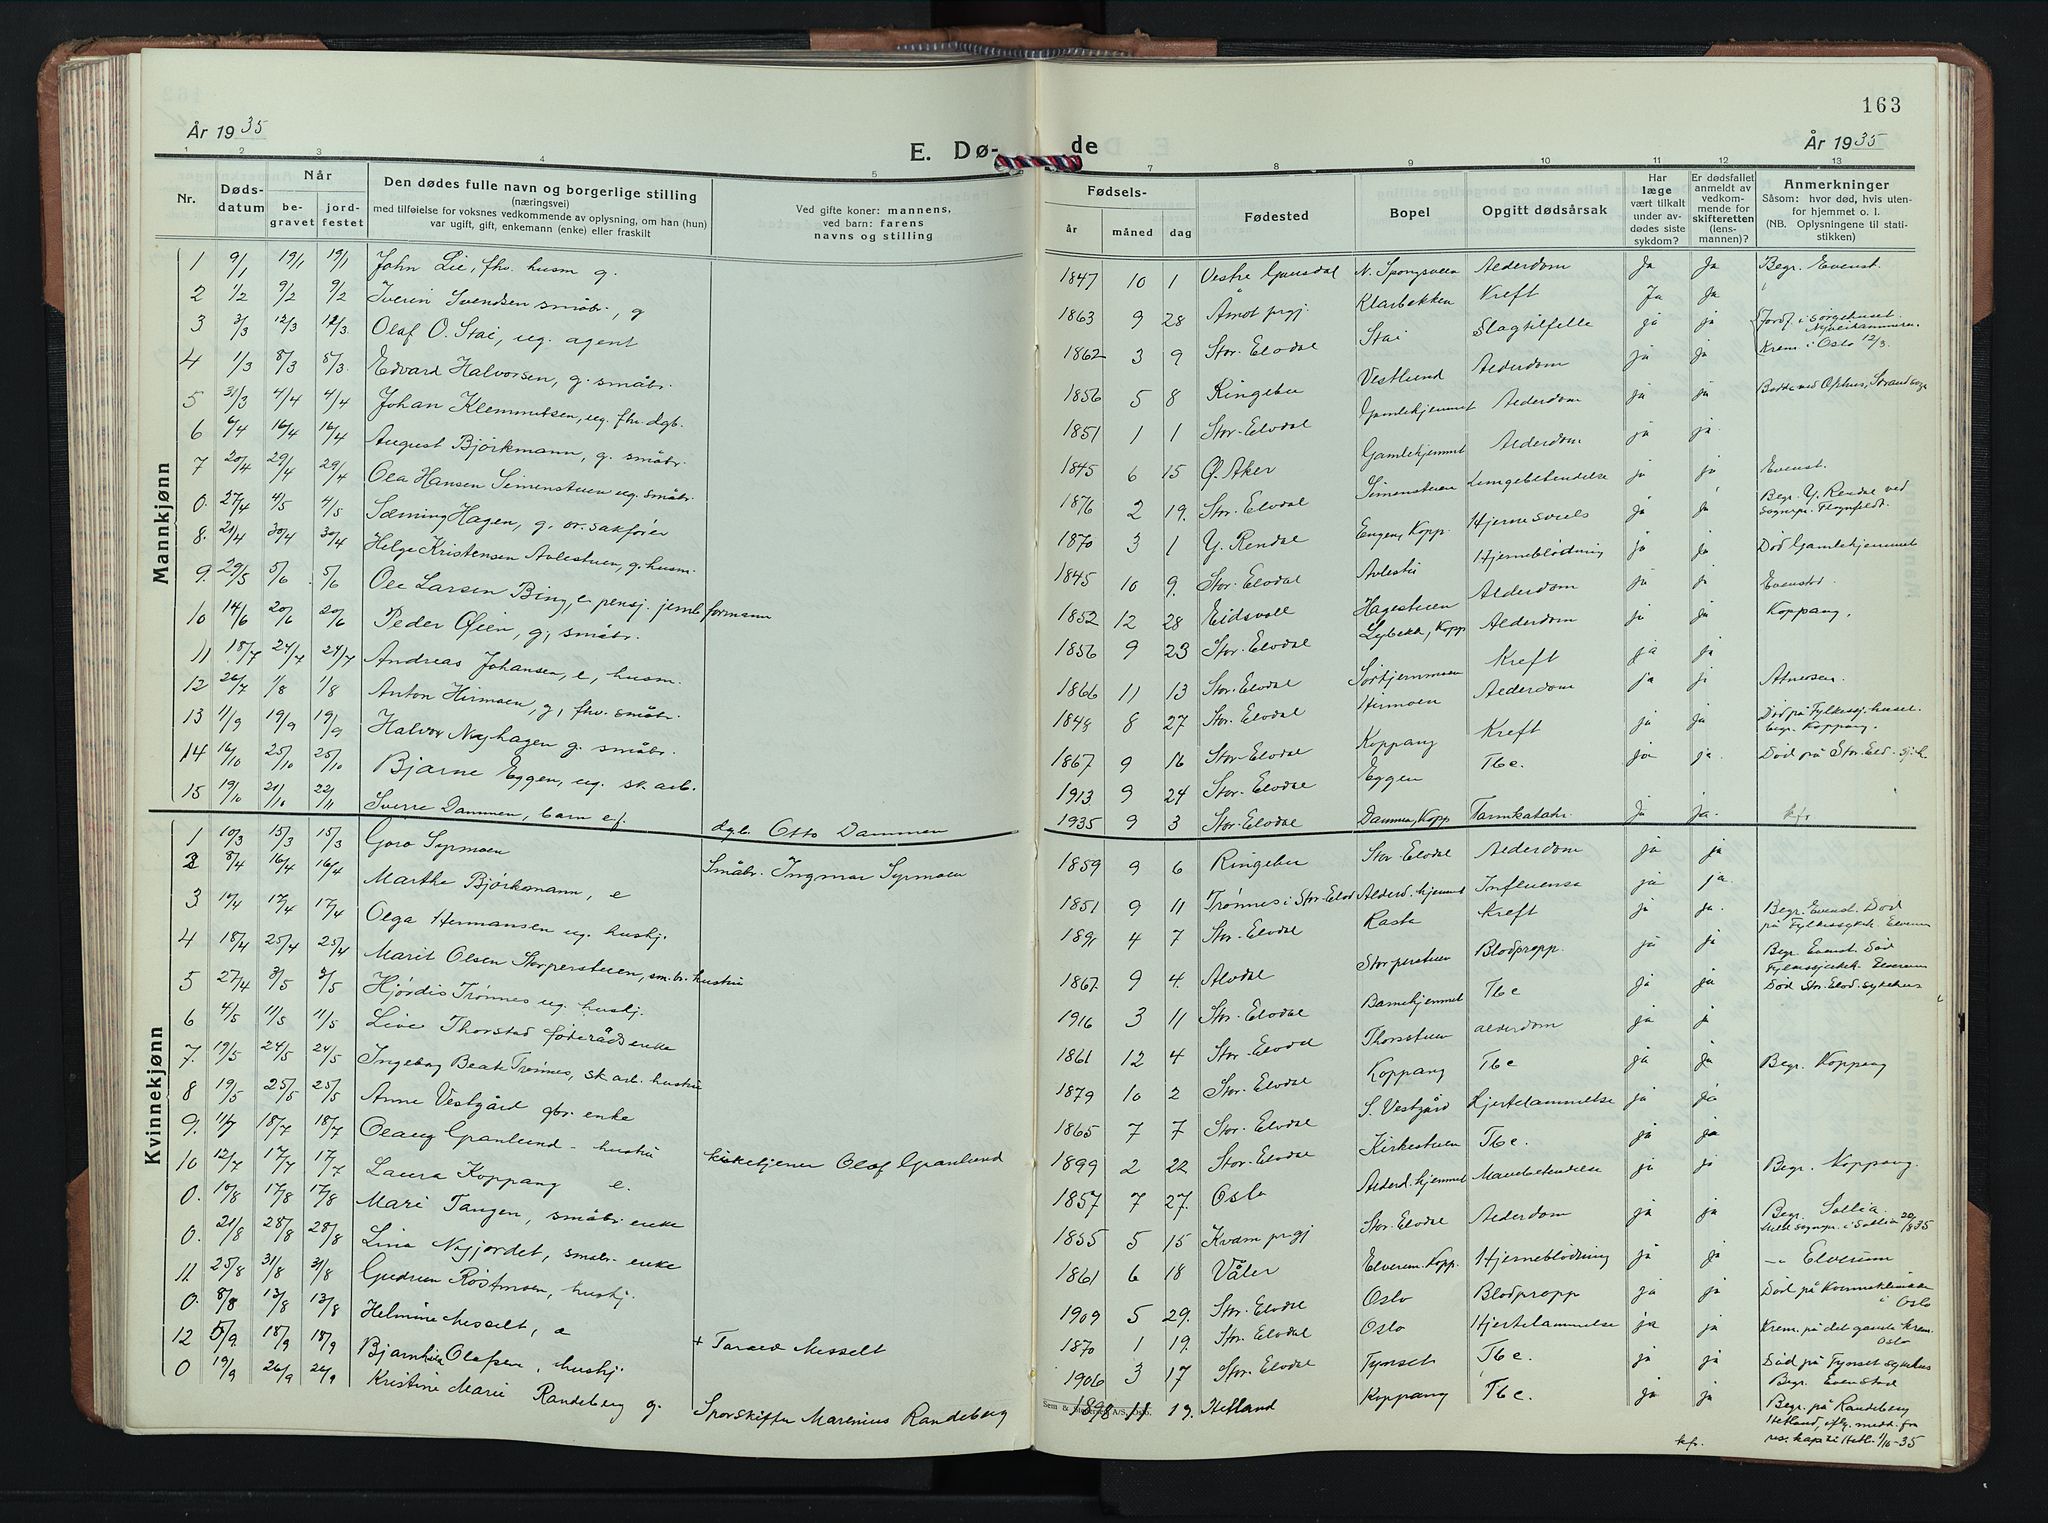 163
År 1935
E. Dø-
de
År 1935
1 2 3 4 5 7 8 9 10 11 12 13
Nr.
Døds-
datum
Når
be-
gravet
jord-
festet
Den dødes fulle navn og borgerlige stilling
(næringsvei)
med tilføielse for voksnes vedkommende av oplysning, om han (hun)
var ugift, gift, enkemann (enke) eller fraskilt
Ved gifte koner: mannens,
ved barn: farens
navns og stilling
Fødsels-
år måned dag
Fødested
Bopel
Opgitt dødsårsak
Har
læge
vært tilkalt
under av-
dødes siste
sykdom?
Er dødsfallet
anmeldt av
vedkom-
mende for
skifteretten
(lens-
mannen)?
Anmerkninger
Såsom: hvor død, hvis uten-
for hjemmet o. l.
(NB. Oplysningene til stati-
stikken)
Mannkjønn
1 9/1 19/1 19/1 John Lie, fhv. husm g. 1847 10 1 Vestre Gausdal Alderdom Ja Ja Begr. Evenst.
2 1/2 9/2 9/2 Iverin Svendsen småbr, g 1863 9 28 Åmot prgj. Klarbekken Kreft Ja Ja
3 3/3 12/3 12/3 Olaf O. Stai, ug. agent 1862 3 9 Stor-Elvdal Stai Slagtilfelle ja ja Jordf. i sørgehuset
Krem. i Oslo 12/3.
4 1/3 8/3 8/3 Edvard Halvorsen, g. småbr. 1856 5 8 Ringebu Vestlund Alderdom ja ja
5 31/3 4/4 4/4 Johan Klemmetsen, ug. fhv. dgb. 1851 1 1 Stor-Elvdal Gamlehjemmet Alderdom ja ja
6 6/4 16/4 16/4 August Bjørkmann, g. småbr. 1845 6 15 Ø. Aker Gamlehjemmet Alderdom ja ja
7 20/4 29/4 29/4 Ola Hansen Simenstuen ug. småbr. 1876 2 19. Stor-Elvdal Simenstuen Lungebetendelse ja ja Evenst.
0. 27/4 4/5 4/5 Sæming Hagen, g. or. sakfører 1870 3 1 Y. Rendal Engen, Kopp Hjernesvuls ja ja Begr. Y. Rendal ved
8. 21/4 30/4 30/4 Helge Kristensen Avlestuen, g. husm. 1845 10 9. Stor-Elvdal Hjerneblødning ja ja Død Gamlehjemmet
9. 29/5 5/6 5/6 Ole Larsen Bing, e. pensj. jernb.formann 1852 12 28 Eidsvoll Hagestuen Alderdom ja ja Evenstad
10 14/6 20/6 20/6 Peder Øien, g, småbr. 1856 9 23 Stor-Elvdal Alderdom ja ja Koppang.
11 18/7 24/7 24/7 Andreas Johansen, e, husm. 1866 11 13 Stor-Elvdal Kreft ja ja
12 26/7 1/8 1/8 Anton Hirmoen, g, fhv. småbr. 8 27 Stor-Elvdal Hirmoen Alderdom ja ja Atneosen.
13 11/9 19/9 19/9 Halvor Nyhagen g. småbr. 1867 9 16 Stor-Elvdal Koppang Kreft ja ja Død på Fylkessj.huset
begr. Koppang.
14 16/10 25/10 25/10 Bjarne Eggen, ug. sk. arb. 1913 9 24 Stor-Elvdal Eggen Tbc. ja ja. Død på Stor-Elvd. sjh.
15 19/10 21/10 22/11 Sverre Dammen, barn ef. dgb. Otto Dammen 1935 9 3 Stor-Elvdal Dammen, Kopp Tarmkatahr. Ja ja. kfr
Kvinnekjønn
1 10/3 15/3 15/3 Goro Syrmoen Småbr. Ingmar Syrmoen 1859 9 6 Ringebu Stor Elvdal Alderdom ja ja
2 8/4 16/4 16/4 Marthe Bjørkmann, e 1851 9 11 Trønnes i Stor-Elvd Alderd. hjemmet Influensa ja ja.
3 10/4 17/4 17/4 Olga Hermansen ug. hushj. 1891 4 7 Stor-Elvdal Rasta Kreft ja ja. Begr. Evenst. Død
på Fylkessykh. Elverum
4 18/4 25/4 25/4 Marit Olsen Storperstuen, sm.br. hustru 1867 9 4. Alvdal Storperstuen Blodpropp. ja ja Begr. Evenst. Død
Fylkessjukeh. Elverum
5 27/4 3/5 3/5 Hjørdis Trønnes ug. hushj. 1916 3 11 Stor-Elvdal Barnehjemmet Tbc ja ja Død Stor.Elvd. sykehus
6 4/5 11/5 11/5 Live Thorstad føderåds enke 1861 12 4 Stor-Elvdal Thorsstuen alderdom ja ja
7. 19/5 24/5 24/5 Ingeborg Beate Trønnes, sk. arb. hustru 1879 10 2 Stor-Elvdal Koppang Tbc ja ja Begr. Koppang
8 19/5 25/5 25/5 Anne Vestgård gbr. enke 1865 7 7 Stor-Elvdal S. Vestgård Hjertelammelse ja ja
9. 11/7 18/7 18/7 Olaug Granlund - hustru kirketjener Olaf Granlund 1899 2 22 Stor-Elvdal Kirkestuen Tbc. ja ja
10 12/7 17/7 17/7 Laura Koppang e. 1857 7 27. Oslo Alderd. hjemmet Mavebetendelse ja ja Begr. Koppang.
0. 10/8 17/8 17/8 Mari Tangen, småbr. enke 1855 5 15 Kvam prgj Stor-Elvdal Alderdom ja ja Begr. Sollia.
0. 21/8 28/8 28/8 Lina Nyjordet, småbr. enke 1861 6 18 Våler Elverum, Kopp. Hjerneblødning ja ja -"- Elverum
11 25/8 31/8 31/8 Gudrun Røstmoen, hushj. 1909 5 29. Stor-Elvdal Oslo Blodpropp ja ja Død på Kvinneklinikken
i Oslo
0. 8/8 13/8 13/8 Helmine Messelt, e + Tarald Messelt 1870 1 19. Stor-Elvdal Oslo Hjertelammelse ja ja Krem. på det gamle krem.
Oslo
12 5/9. 18/9 18/9 Olafsen, hushj. 1906 3 17 Stor-Elvdal Tynset Tbc. ja ja Død på Tynset sykehus
Begr. Evenstad
0 19/9 26/9 26/9 Kristine Marie Randeberg g. Sporskifter Marenius Randeberg 1898 11 19. Hetland Koppang Tbc. ja ja Begr. på Randeberg
Hetland, iflg. medd. fra
res. kap. i Hetl. 1/10-35
kfr.